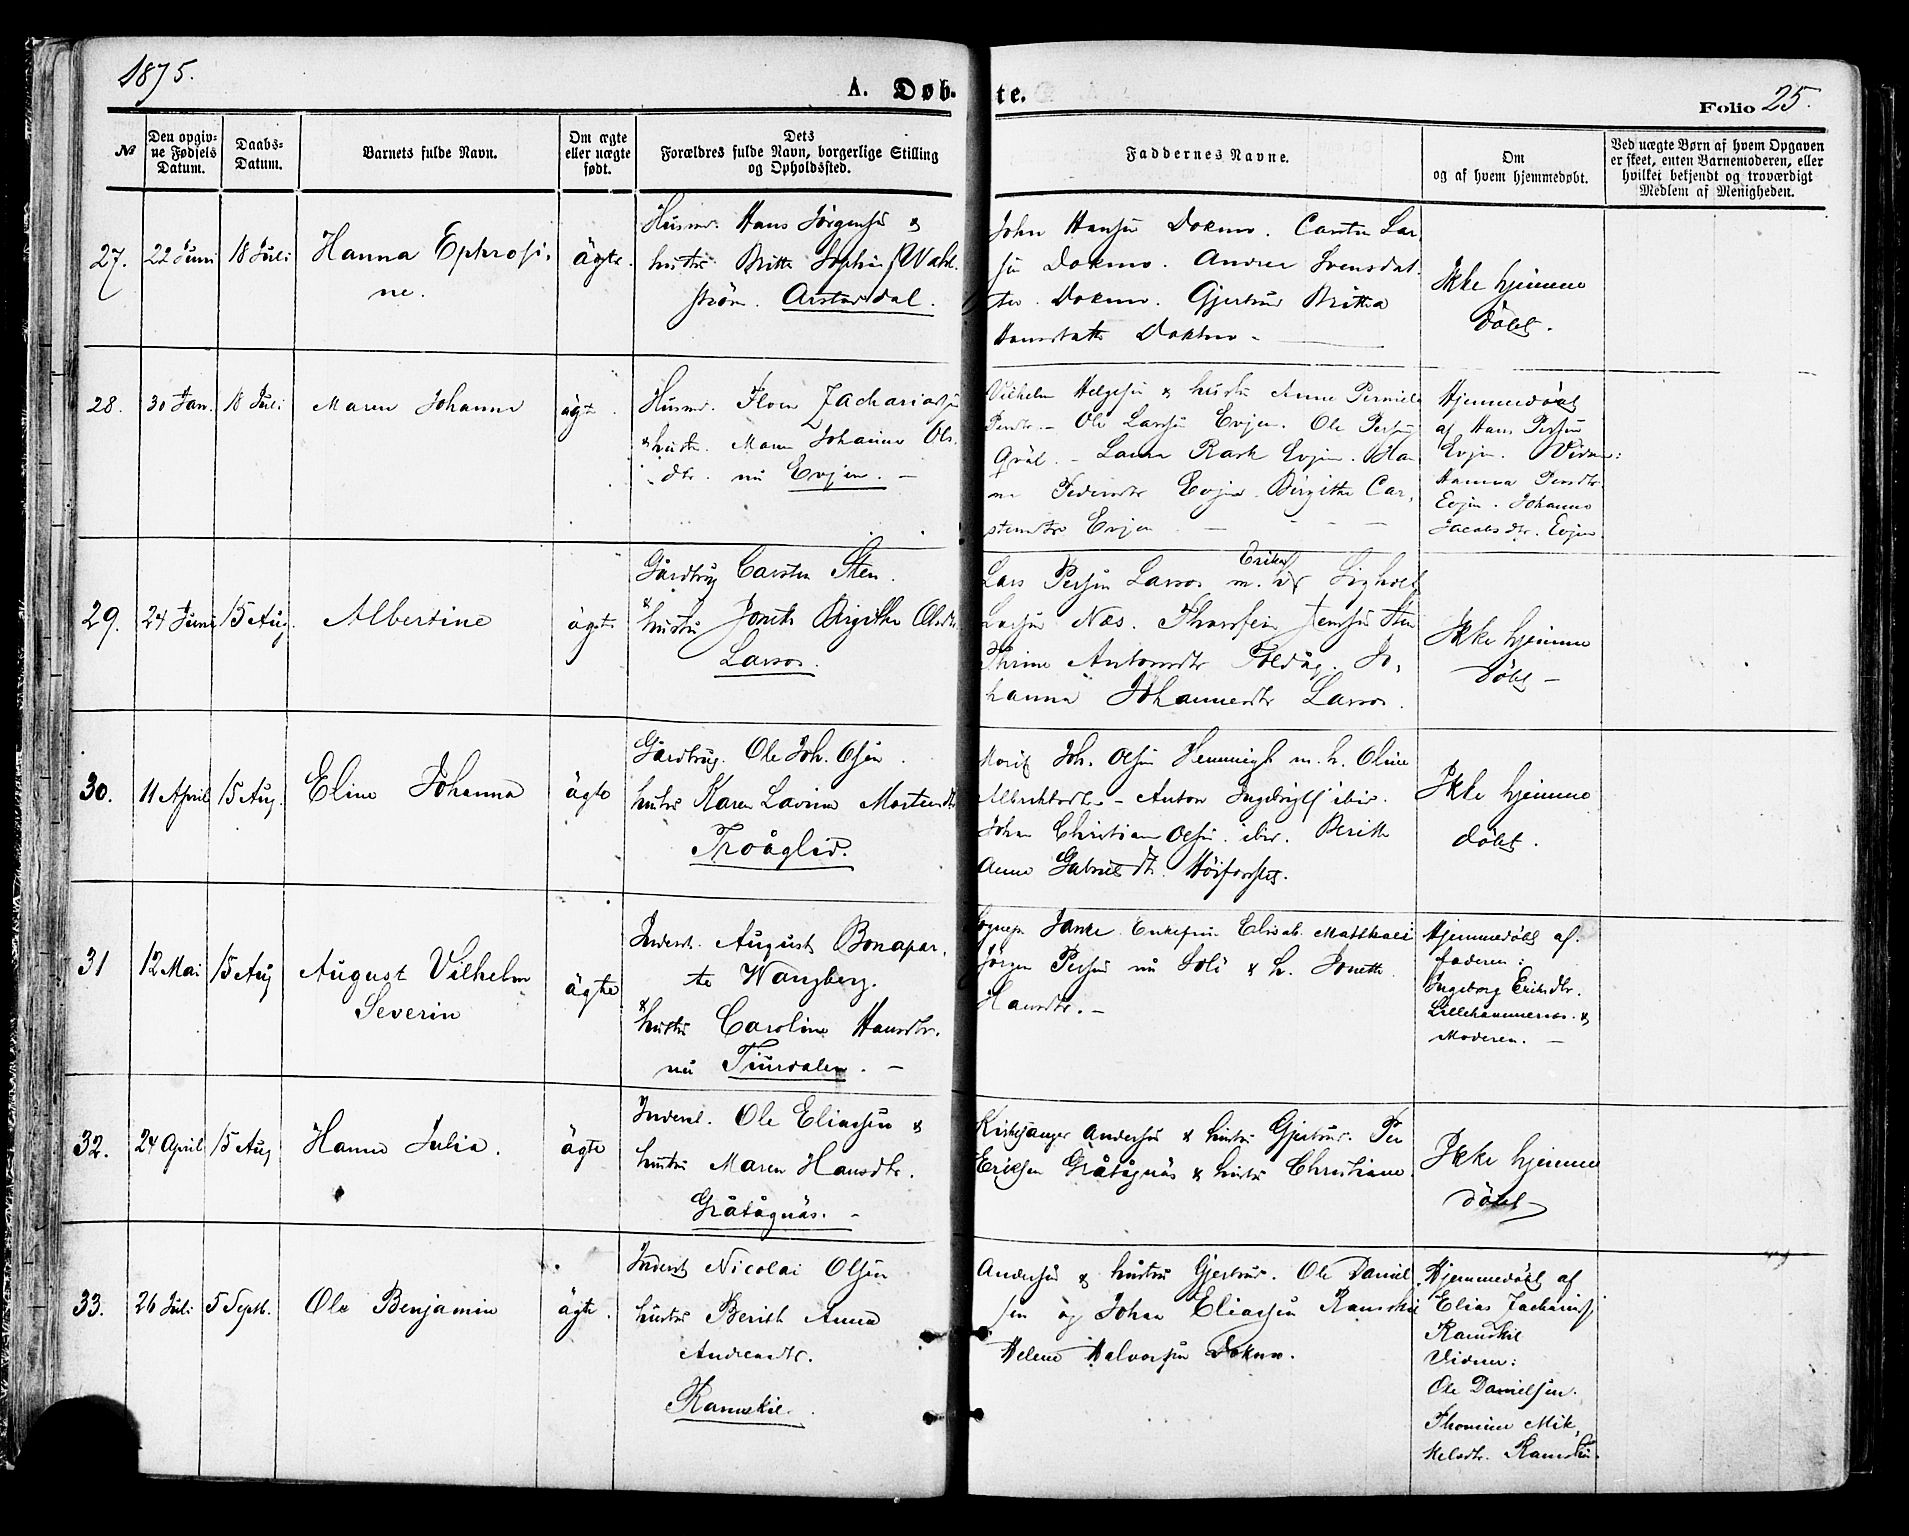 1875.
A. Døb-
te.
Folio 25.
№
Den opgiv-
ne Fødsels
Datum.
Daabs-
Datum.
Barnets fulde Navn.
Om ægte
eller uægte
født.
Dets
Forældres fulde Navn, borgerlige Stilling
og Opholdssted.
Faddernes Navne.
Om
og af hvem hjemmedøbt.
Ved uægte Børn af hvem Opgaven
er skeet, enten Barnemoderen, eller
hvilket bekjendt og troværdigt
Medlem af Menigheden.
27.
22 Juni
18 Juli
Hanna Ephrosi-
ne.
ägte.
Husmd. Hans Jørgensen &
hustru Britte Sophie Wahl-
strøm.
John Hansen Dokmo. Carsten Lar-
sen Dokmo. Andrea Svensdat-
ter Dokmo. Gjertrud Britha
Dokmo -
Ikke hjemme
döbt.
28.
30 Jan.
18 Juli
Maren Johanna
ägte.
Husmd. Zachariassen
& hustru Maren Johanna Ols-
dtr. nu Evjen. -
Vilhelm Helgesen & hustru Anne Pernille
Persdtr. - Ole Larssen Evjen. Ole Persen
Evjen. Han-
na Pedersdtr Evjen. Birgithe Car-
stensdtr Evjen - - - -
Hjemmedöbt
af Hans Persen
Evjen. Vidner:
Hanna Persdtr.
Evjen. Johanna
Jacobsdtr. Evjen
29.
24 Juni
15 Aug.
Albertine
ägte
Gårdbrug Carsten Sten.
& hustru Jonette Birgithe Olsdtr.
Larsos.
Eriksd
Lars Persen Larsos m. h.
Larsen Näs. Jensen Sten
Thrine Antonsdtr Toldåg. Jo-
hanna Johannesdtr Larsos.
Ikke hjemme
döbt -
30.
11 April
15 Aug.
Eline Johanna
ägte
Gårdbrug. Ole Joh. Olsen.
hustru Karen Lavina Mortensdtr
Troåglid.
Joh. Olsen m. h. Oline
Albrichtsdtr. - Anton ibid.
Johan Christian Olsen ibid. Berith
Anna Gabrielsdtr.
Ikke hjemme
döbt.
31
12 Mai
15 Aug
August Vilhelm
Severin
ägte
Inderst. August Bonapar-
te Wangberg.
& hustru Caroline Hansdtr.
nu
Enkefru Elisab. Matthæi
Jörgen Persen nu & h. Jonette
Hansdtr. -
Hjemmedöbt af
faderen:
Ingeborg Eriksdtr.
&
Moderen. -
32.
24 April
15 Aug
Hanna Julia.
ägte
Inderst. Ole Eliassen &
hustru Maren Hansdtr.
Gråtågnäs. -
Kirkesanger Andersen & hustru Gjertrud. Per
Eriksen Gråtågnäs & hustru Christiane
Ikke hjemme
döbt
33.
26 Juli
5 Septb.
Ole Benjamin
ägte.
Inderst Nicolai Olsen
hustru Berith Anna
Andreasdtr.
Ramskil.
Andersen & hustru Gjertrud. Ole Daniel-
sen og Johan Eliassen Ramskil
Helene Halvorsen Dokmo.
Hjemmedöbt af
Elias Zachariass.
Ramskil
Vidner:
Ole Danielsen.
Thomine Mik-
kelsdtr. Ramskil.